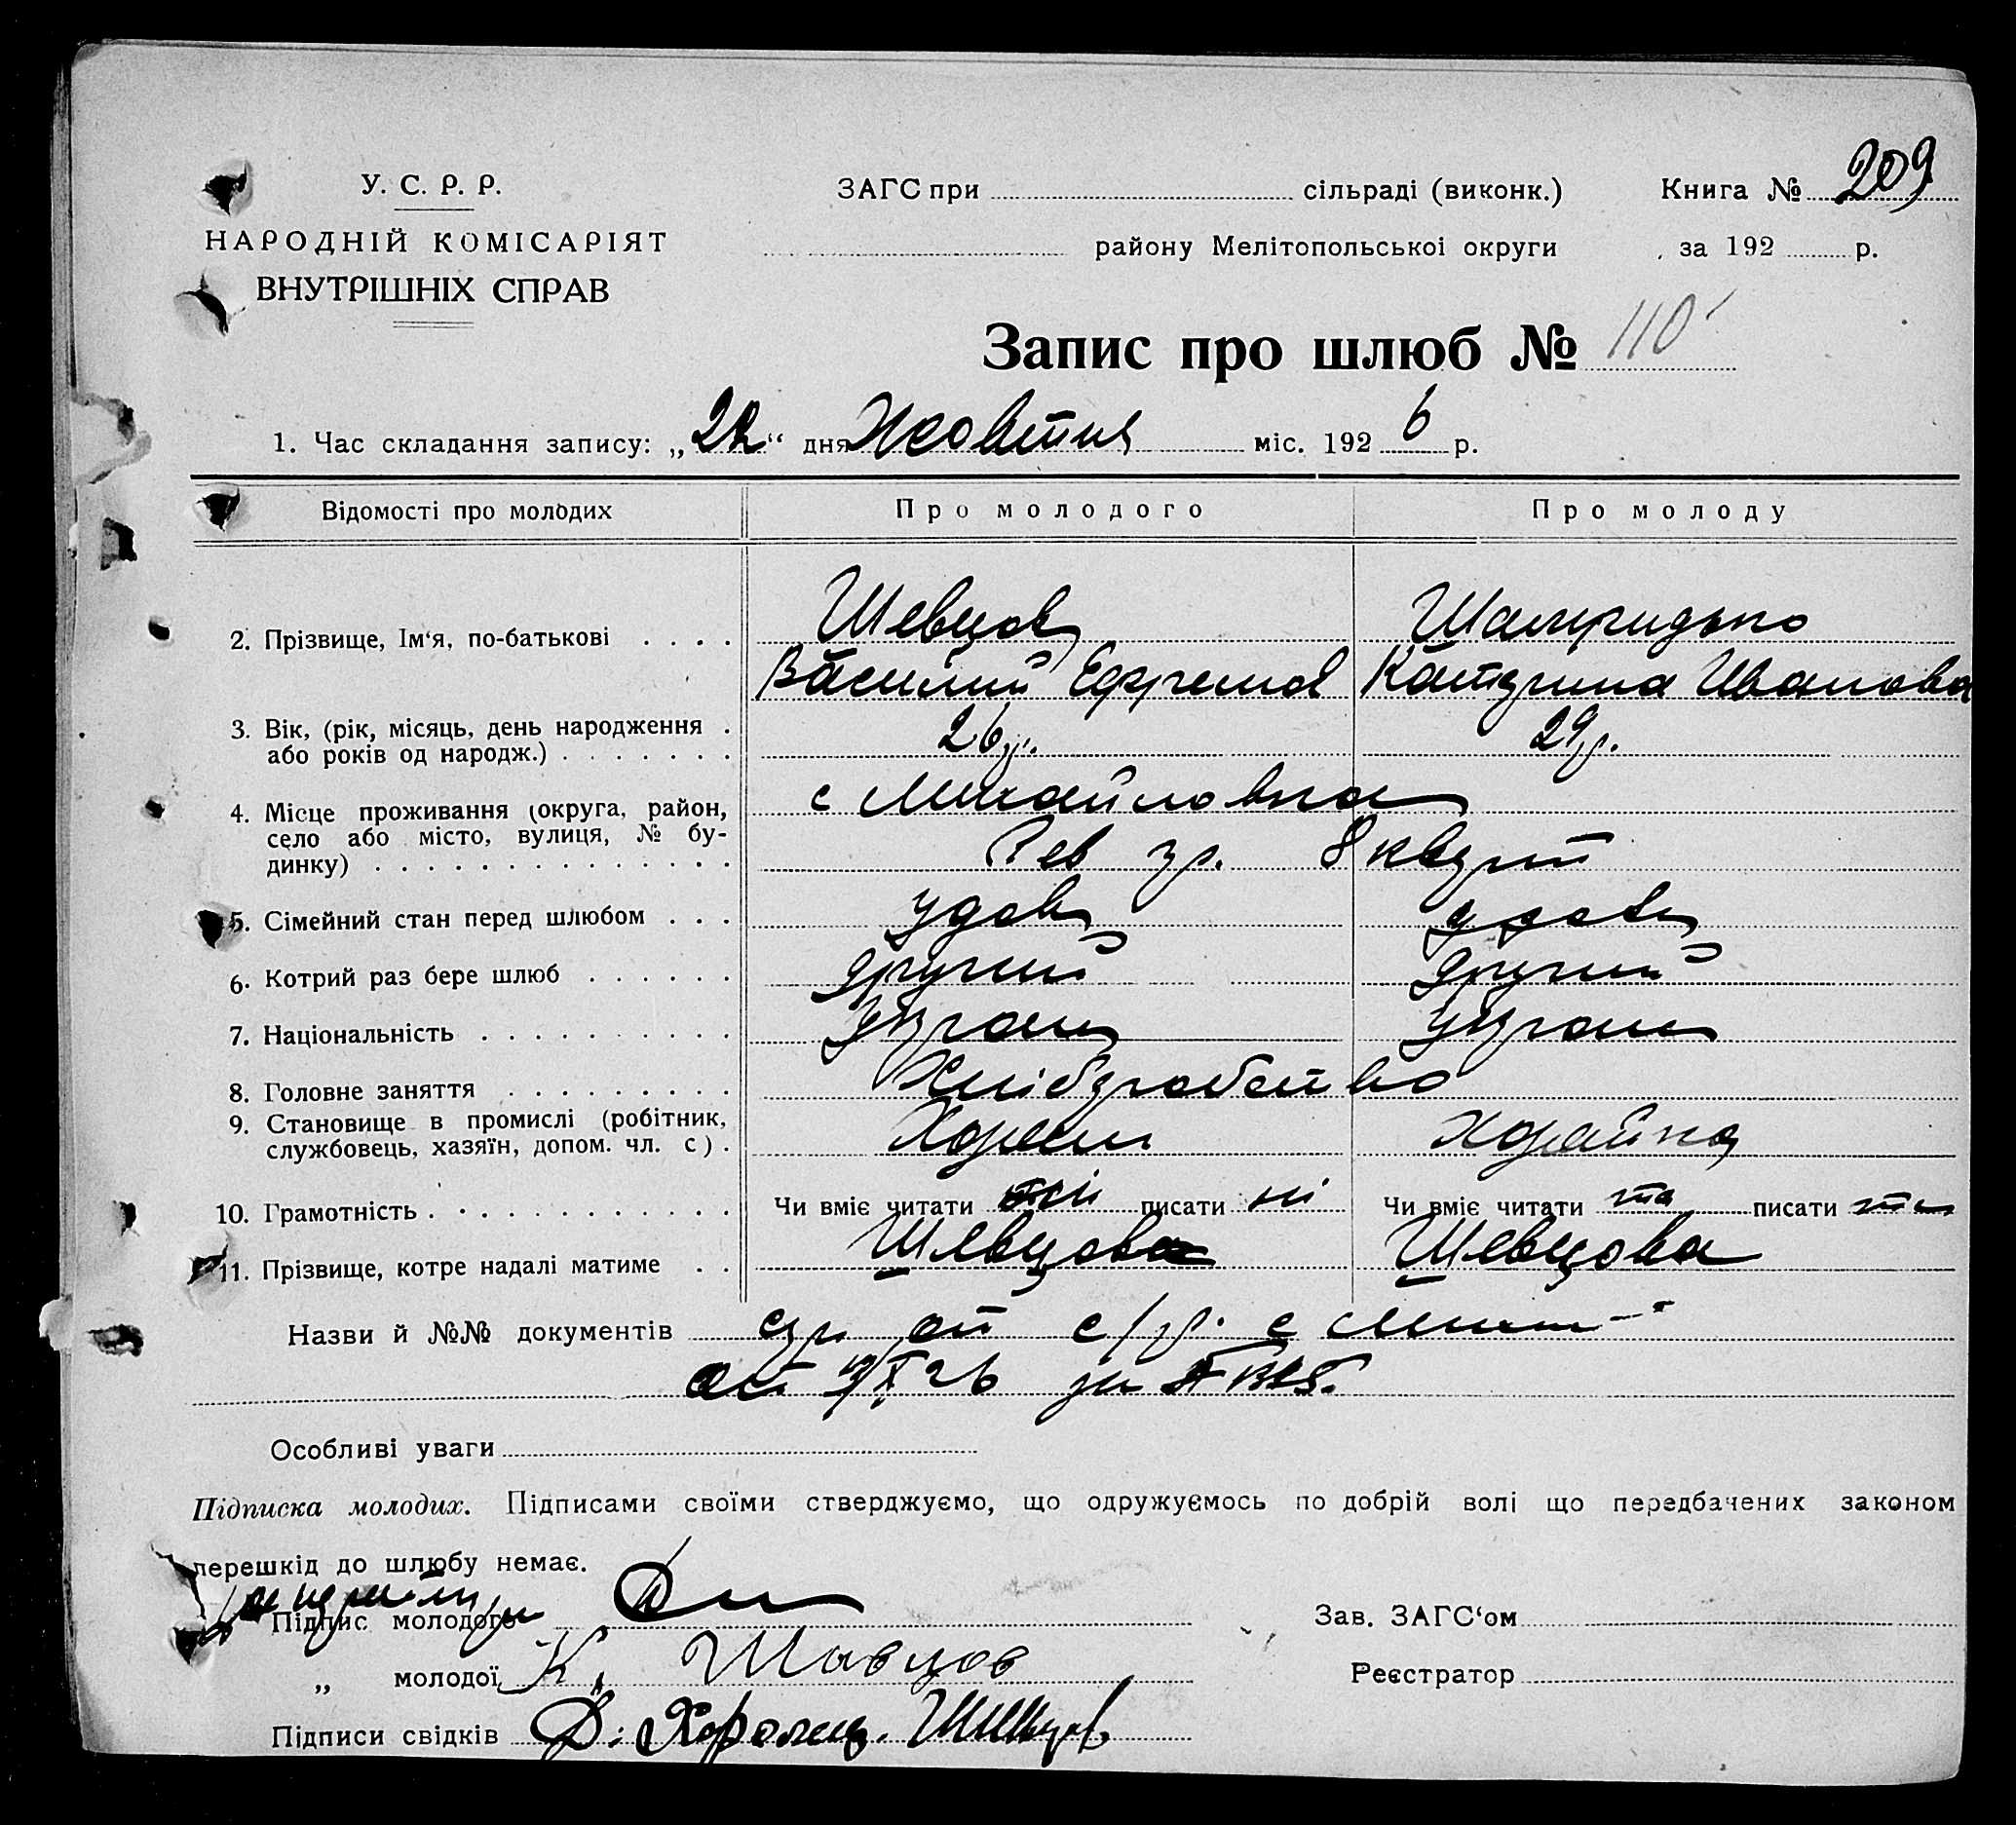 У. С. Р. Р.
НАРОДНІЙ КОМІСАРІЯТ
ВНУТРІШНІХ СПРАВ
ЗАГС при сільраді (виконк.) Книга № 209
району Мелітопольськоі округи за 192 р.
Запис про шлюб № 110
1. Час складання запису: „22“ дня Жовтня міс. 1926 р.
Відомості про молодих Про молодого Про молоду
2. Прізвище, Ім‘я, по-батькові Шевцов
Василий Ефремов Катерина Иванова
3. Вік, (рік, місяць, день народження
або років од народж.) 26 р. 29 р.
4. Місце проживання (округа, район, с Михайловка
село або місто, вулиця, № бу-
динку) Рев гр. 8 квартт
5. Сімейний стан перед шлюбом удов удов
6. Котрий раз бере шлюб другий другий
7. Національність Украин Украин
8. Головне заняття Хліборобство
9. Становище в промислі (робітник,
службовець, хазяїн, допом. чл. с). Хозяин хозяйка
10. Грамотність Чи вміє читати ні писати ні Чи вміє читати та писати та
11. Прізвище, котре надалі матиме Шевцов Шевцова
Назви й №№ документів с/р. с
от X 26 за
Особливі уваги
Підписка молодих. Підписами своїми стверджуємо, що одружуємось по добрій волі що передбачених законом
перешкід до шлюбу немає.
Підпис молодого
Зав. ЗАГС‘ом
„ молодої К. Шавцов
Реєстратор
Підписи свідків Д.